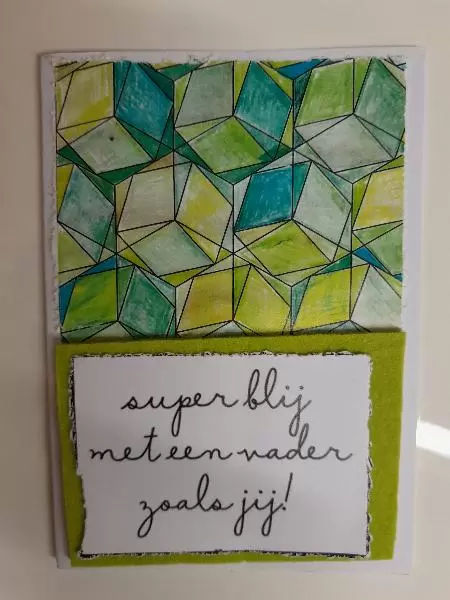 super blij
met een vader
zoals jij!